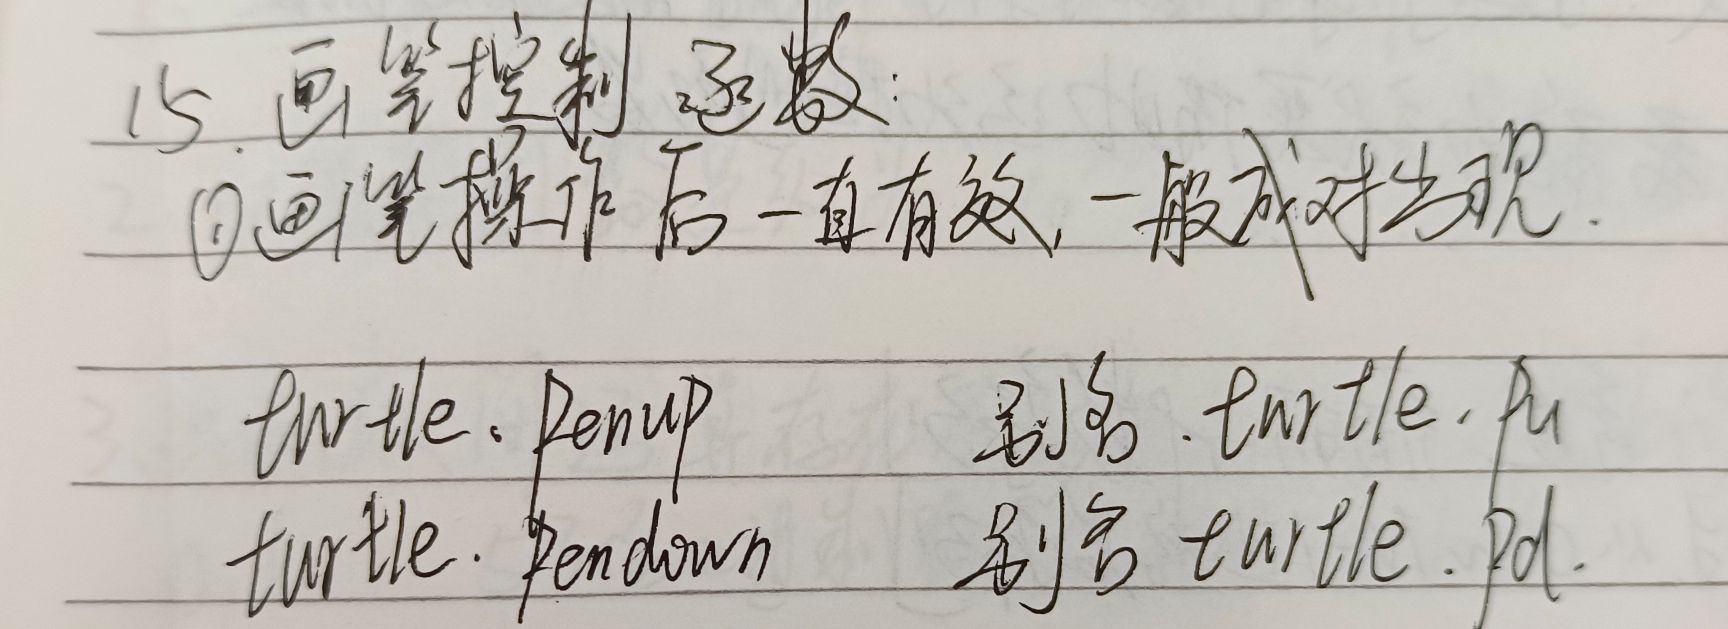 15. 画笔控制函数:
①画笔操作后一直有效, 一般成对出现.
turtle.penup 别名.turtle.pu
turtle.pendown 别名 turtle.pd.